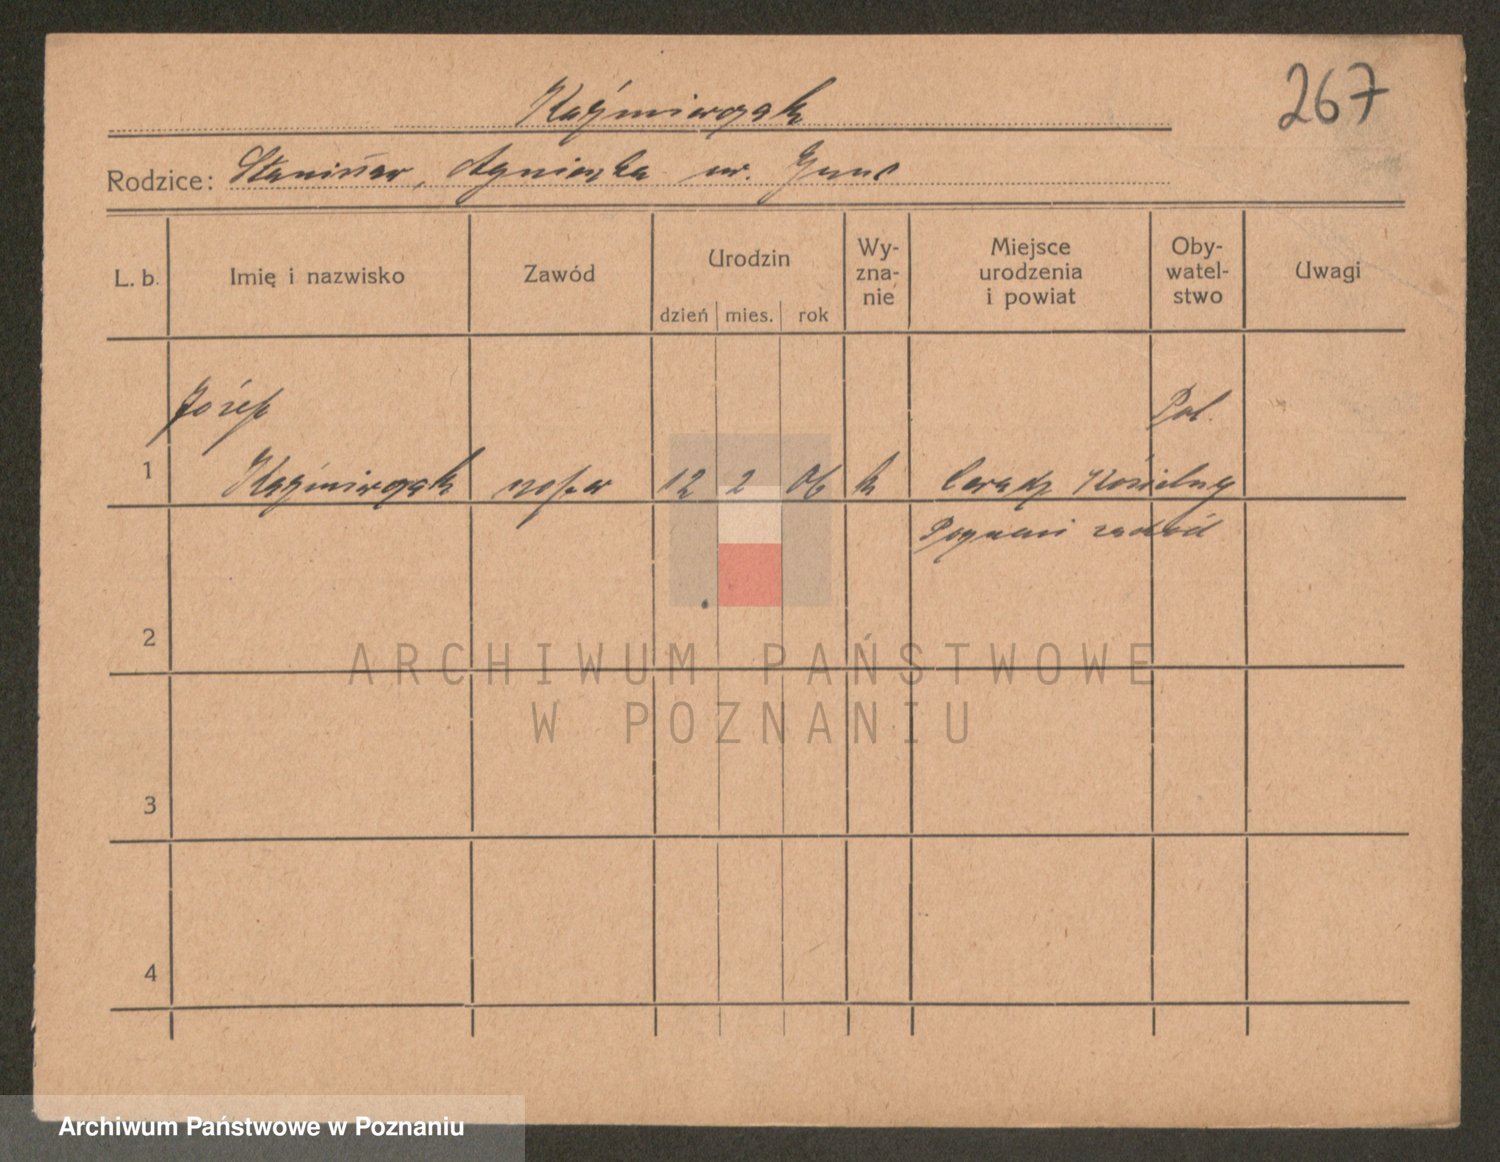 267
Kaźmierczak
Rodzice: Stanisław, Agnieszka ur.
L. b.
Imię i nazwisko
Zawód
Urodzin
dzień
mies.
rok
Wy-
zna-
nie
Miejsce
urodzenia
i powiat
Oby-
watel-
stwo
Uwagi
Józef
Pol.
1
Kaźmierczak
12
2
06
k
Ceradz Kościelny
Poznań zachód
2
3
4
ARCHIWUM PAŃSTWOWE
W POZNANIU
Archiwum Państwowe w Poznaniu